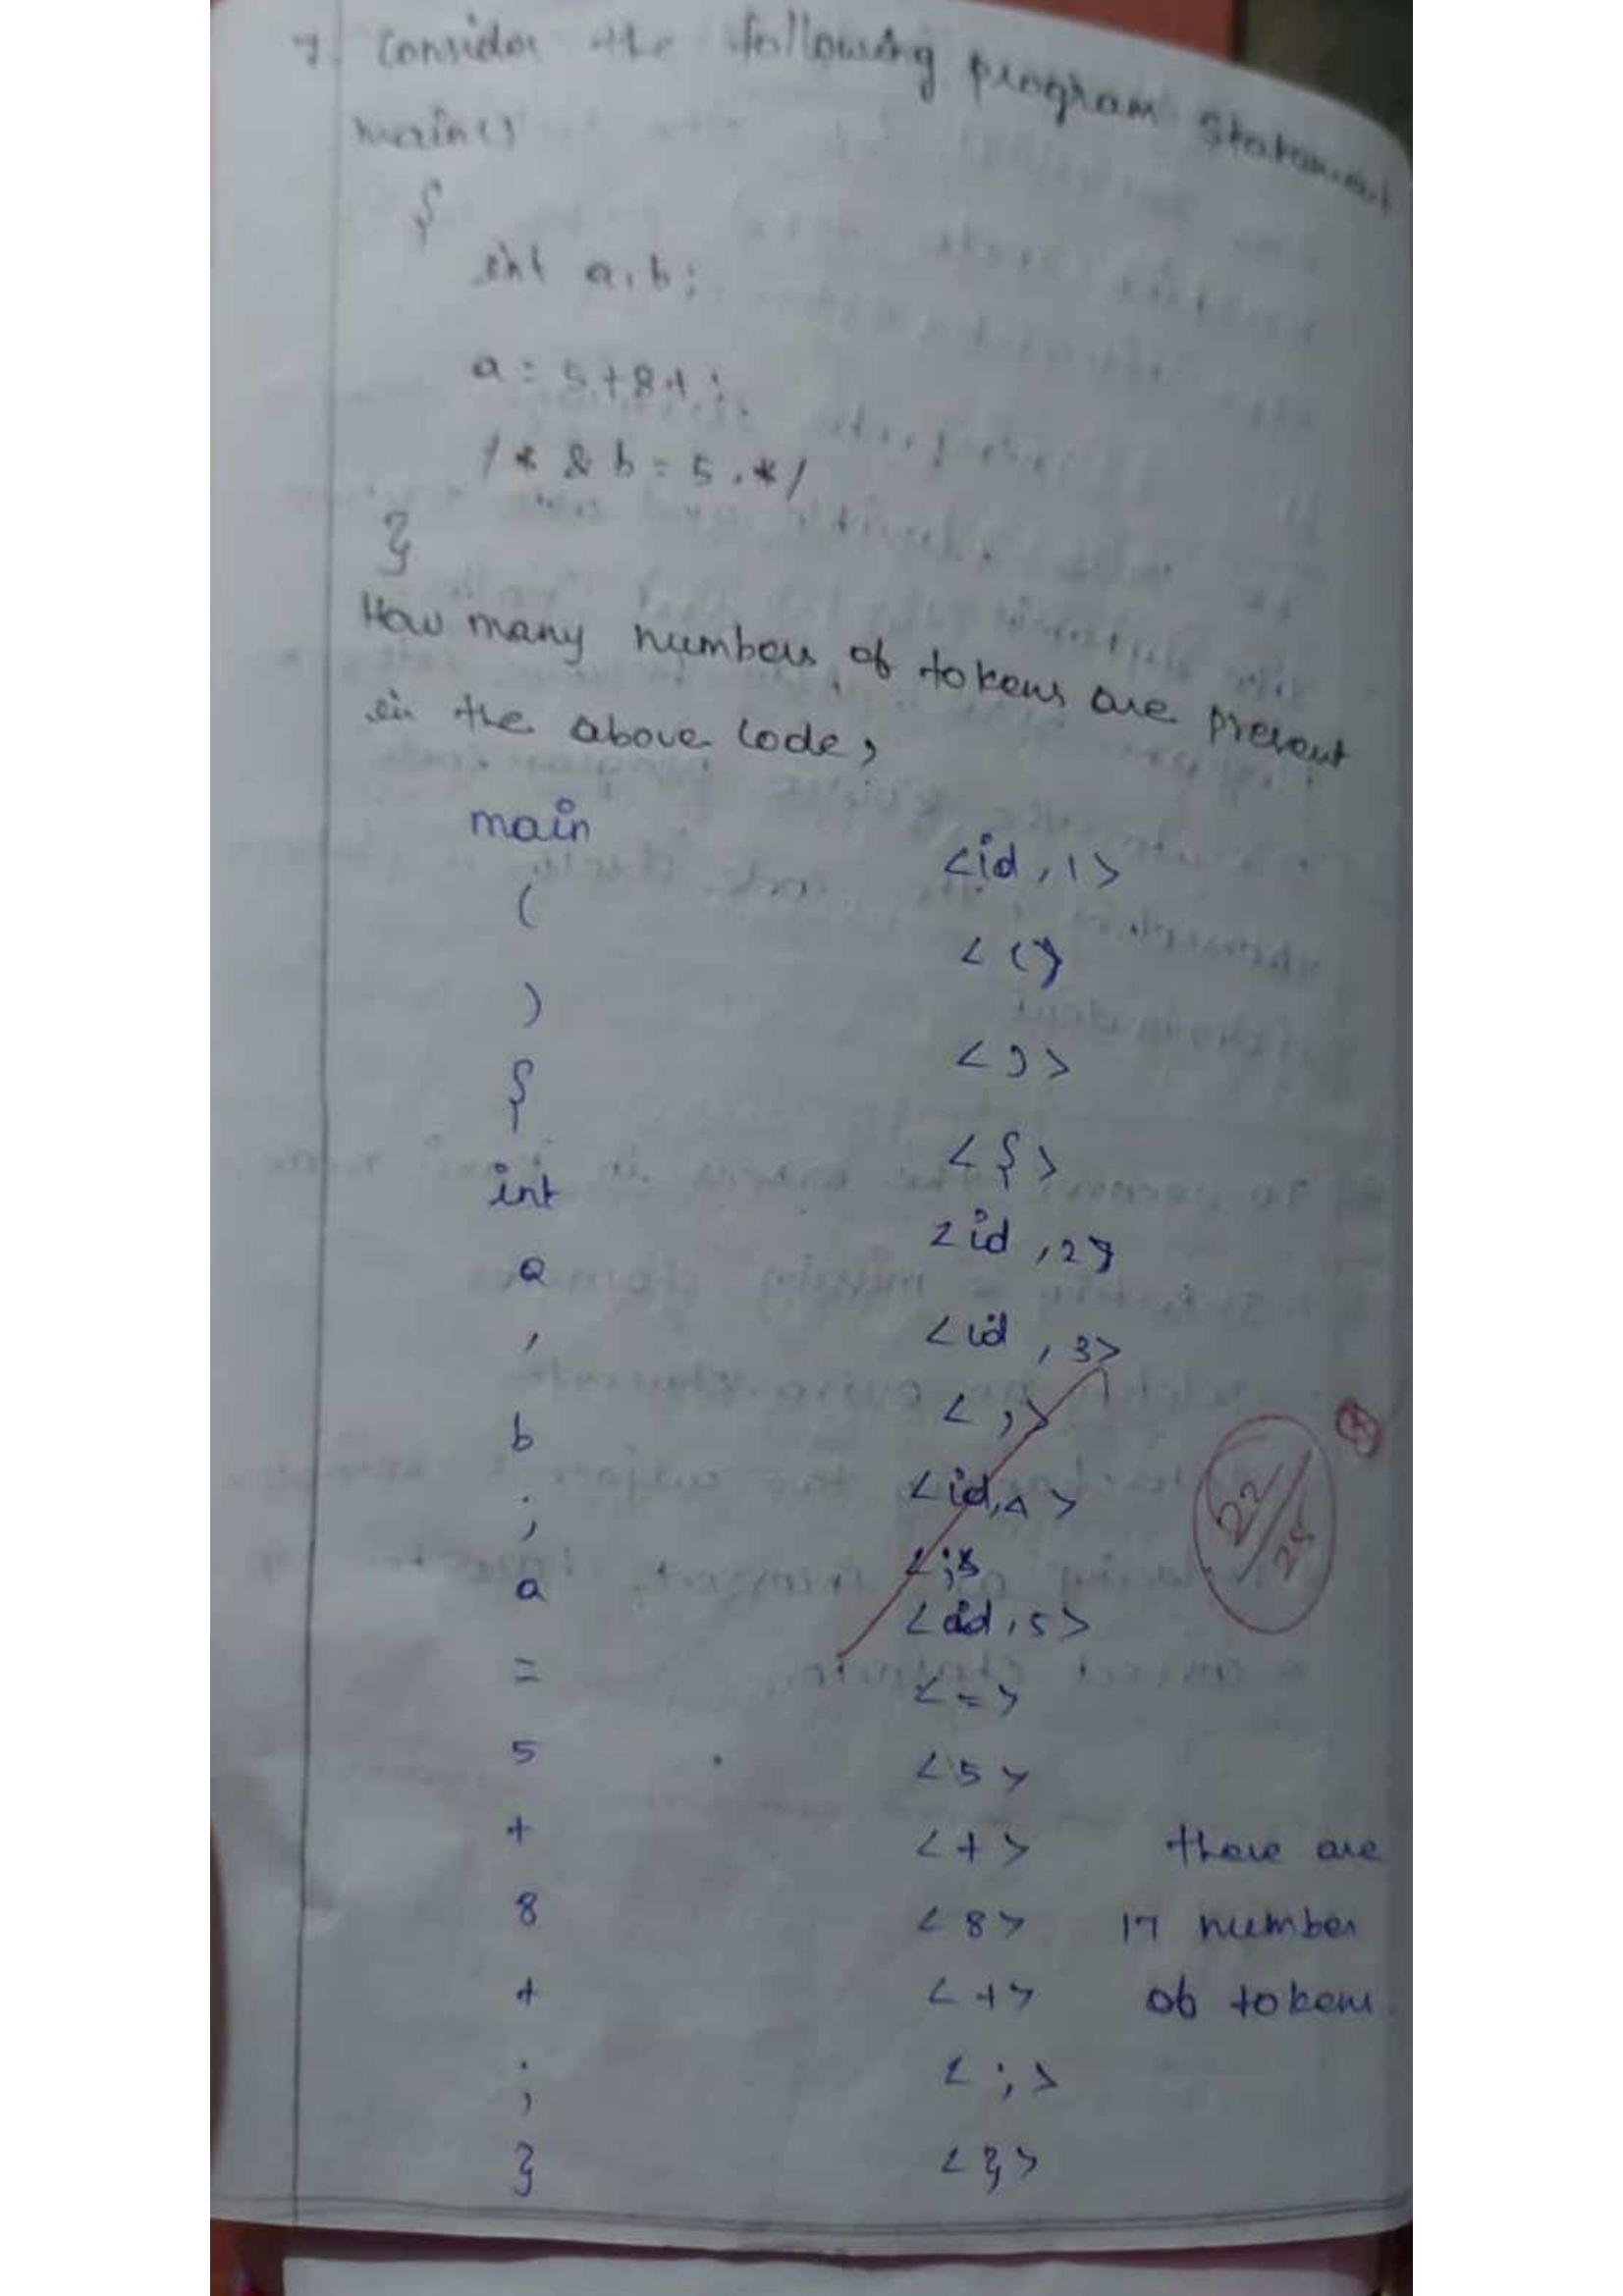 7. Consider the following program statement
main()
{
int a, b;
a = 5+8+;
/* & b = 5, */
}
How many numbers of tokens are present
in the above code,
main <id, 1>
( <(>
) <)>
{ <{>
int <id, 2>
a <id, 3>
, <,>
b <id, 4>
; <;>
a <id, 5>
= <=>
5 <5>
+ <+> there are
8 <8> 17 number
+ <+> of tokens.
; <;>
} <}>
22/25